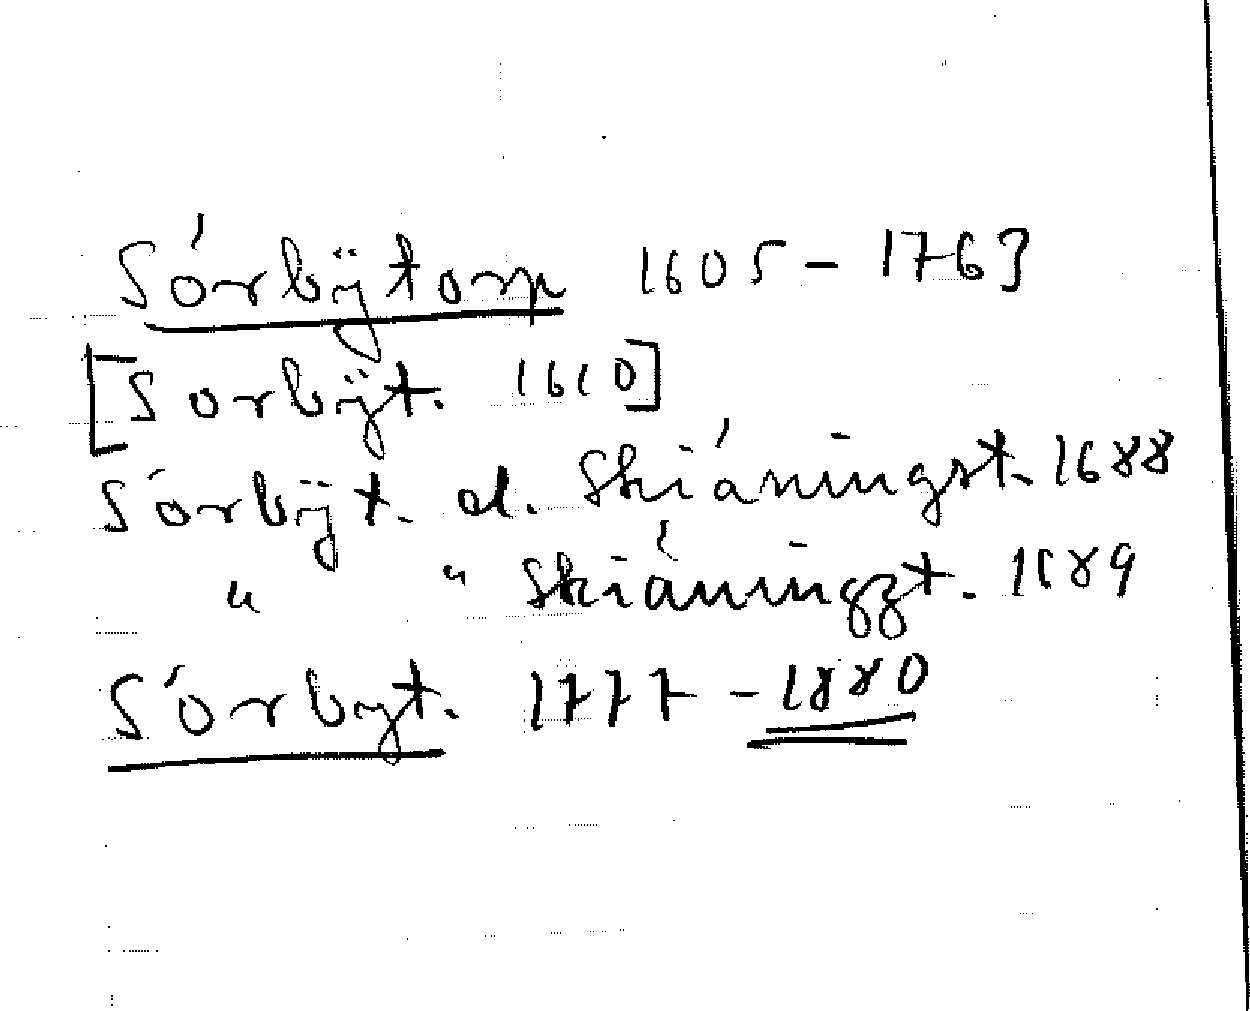 Sórbÿtorp 1605 - 1763
[Sorbÿt. 1610]
Sórbÿt. al. Skiáningst. 1688
" " Skiáningzt. 1689
Sórbyt. 1777 - 1880